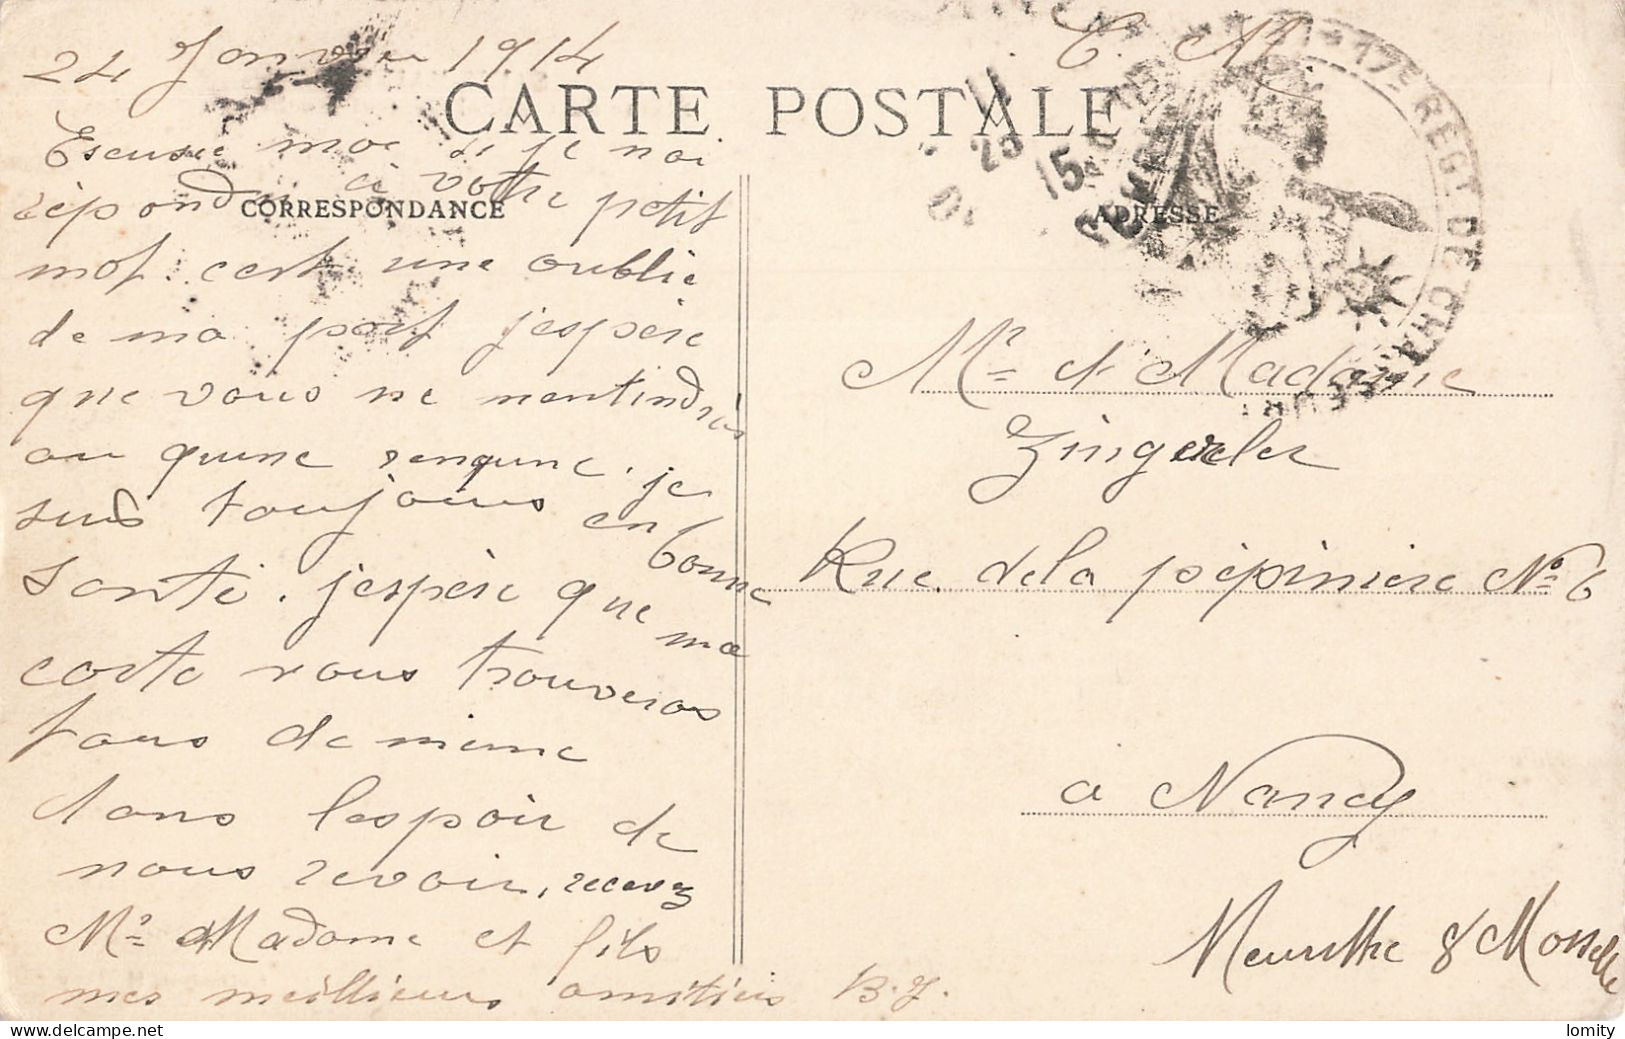 24 Janvier 1914
C. M.
CARTE POSTALE
CORRESPONDANCE
ADRESSE
17E REGT DE CHASSEURS
25
15
Escusée moi si je nai
répondu à votre petit
mot. cest une oublie
de ma part j'espère
que vous ne mentindrés
au quune renqune. je
suis toujours en bonne
santé. j'espère que ma
carte vous trouveras
tous de même
dans l'espoir de
nous revoir, recevez
Mr Madame et fils
mes meillieurs amitiés B.J.
Mr et Madame
Zingerler
Rue de la pépinière No 6
à Nancy
Meurthe & Moselle
lomity